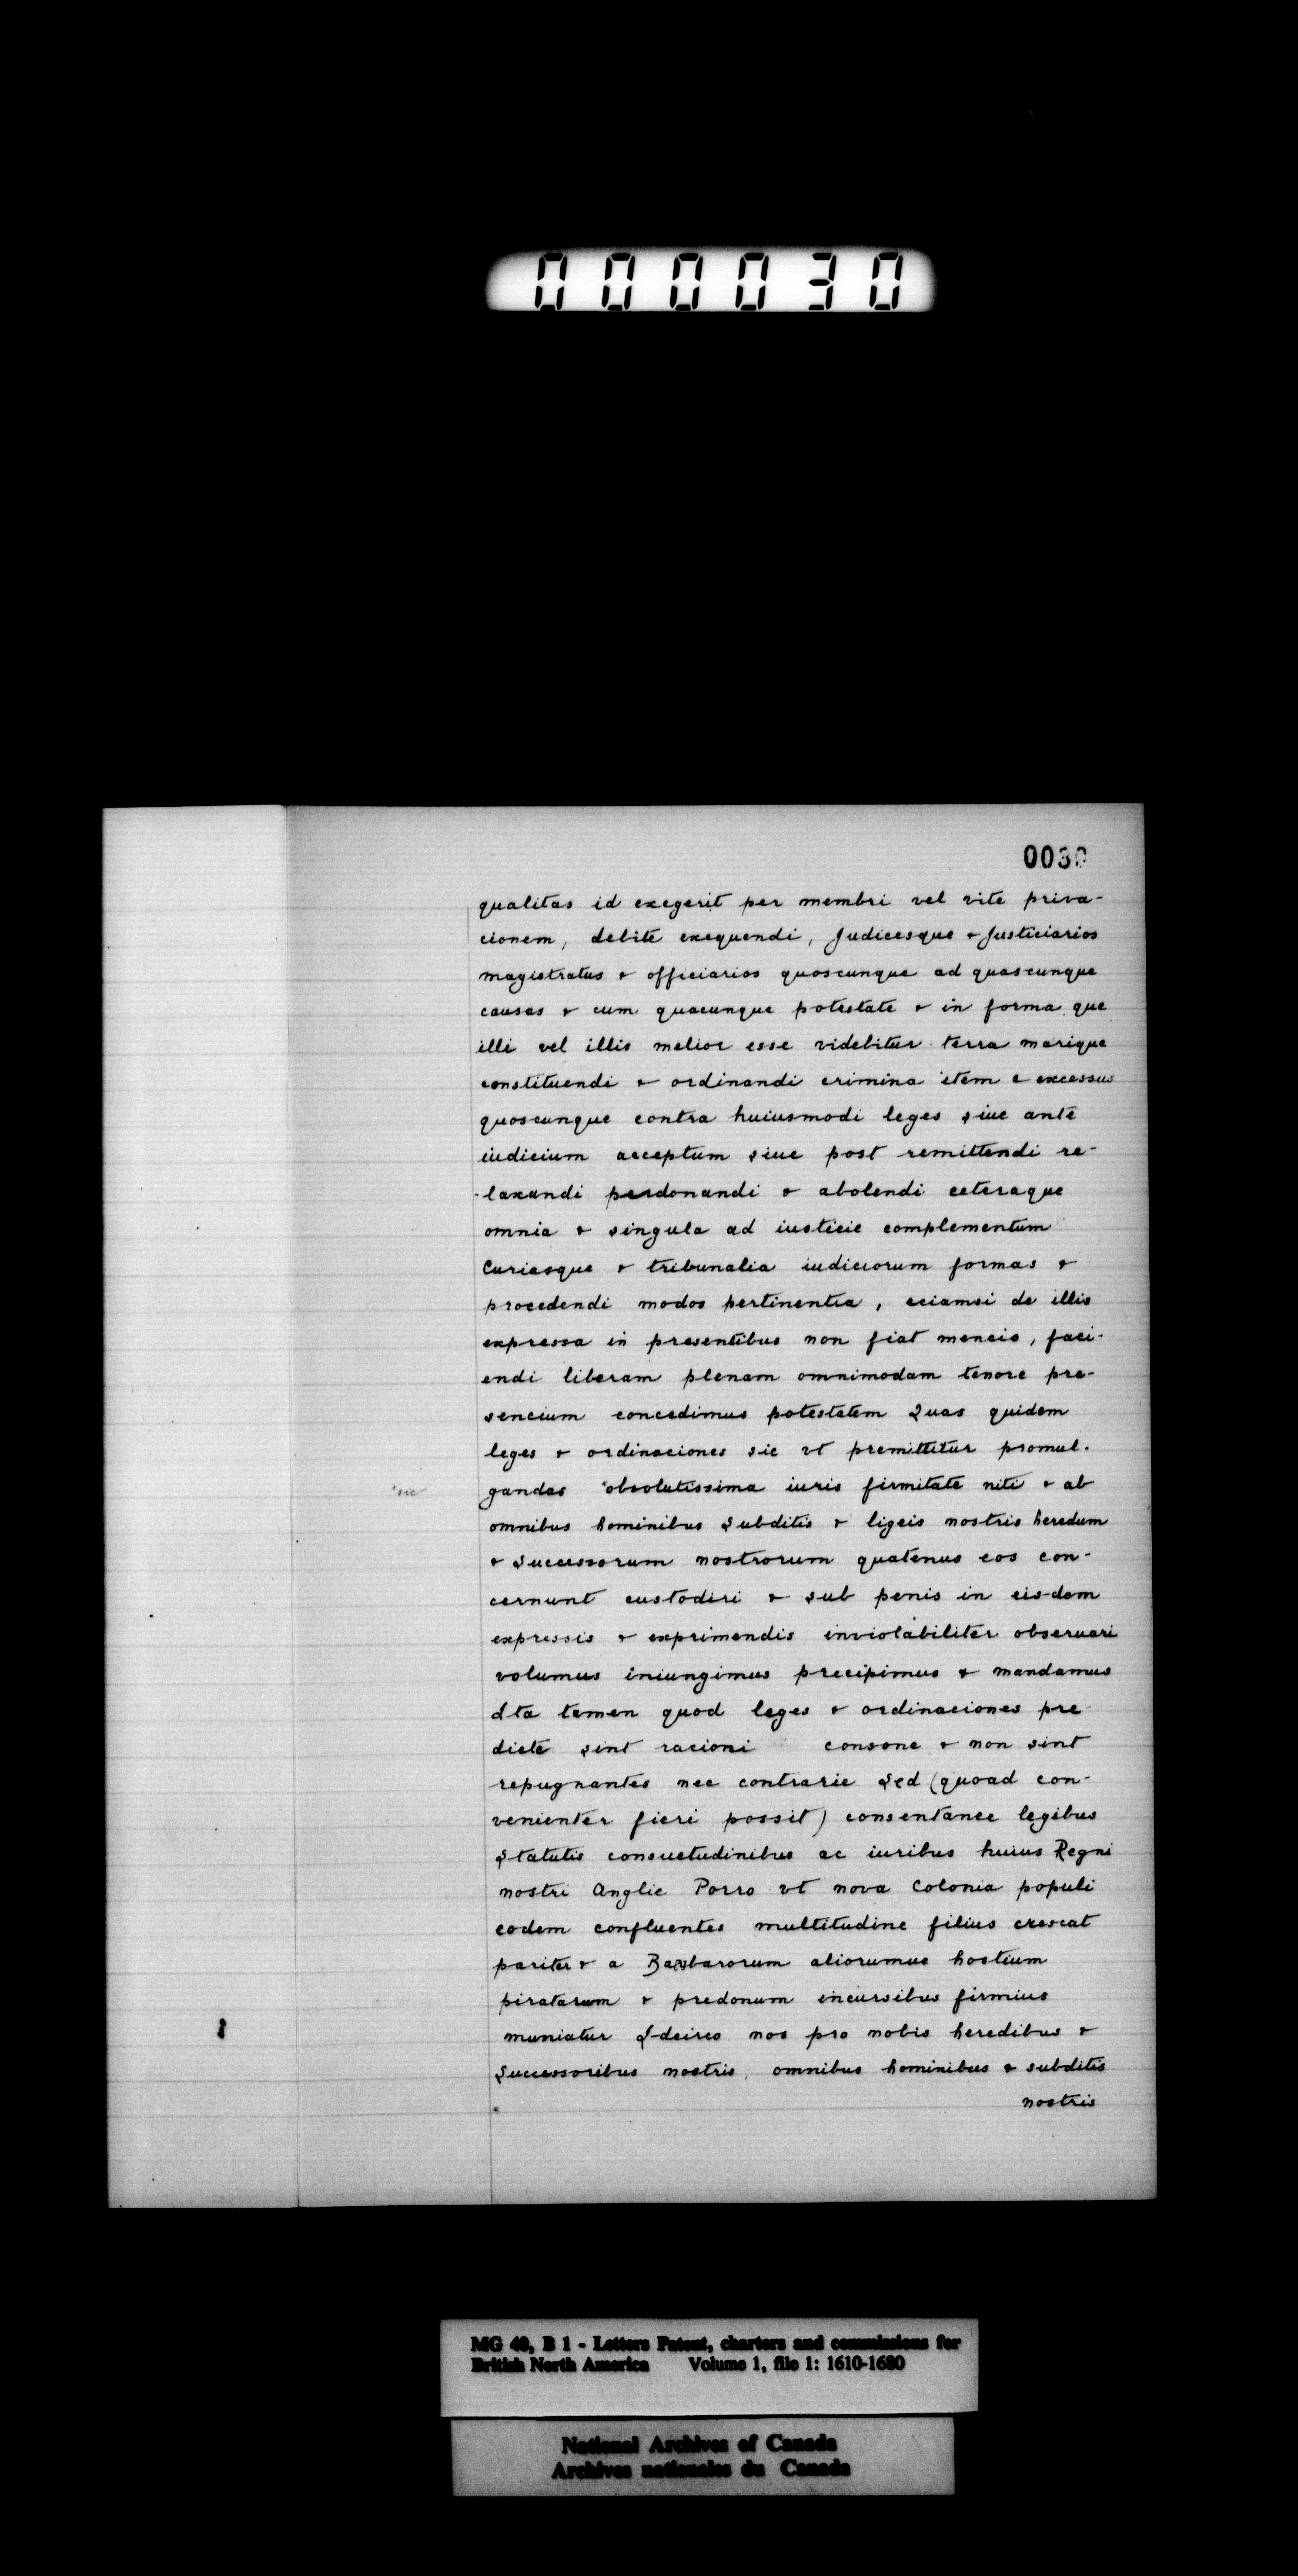 000030
0030
qualitas id exegerit per membri vel vite priva-
cionem, debite exequendi, Judicesque & Justiciarios
magistratus & officiarios quoscunque ad quascunque
causas & cum quacunque potestate & in forma que
illi vel illis melior esse videbitur terra marique
constituendi & ordinandi crimina item & excessus
quoscunque contra huiusmodi leges siue ante
iudicium acceptum siue post remittendi re-
-laxandi perdonandi & abolendi ceteraque
omnia & singula ad iusticie complementum
Curiasque & tribunalia iudiciorum formas &
procedendi modos pertinentia, eciamsi de illis
expressa in presentibus non fiat mencio, faci-
endi liberam plenam omnimodam tenore pre-
sencium concedimus potestatem Quas quidem
leges & ordinaciones sic vt premittitur promul-
*sic gandas *obsolutissima iuris firmitate niti & ab
omnibus hominibus Subditis & ligeis nostris heredum
& Successorum nostrorum quatenus eos con-
cernunt custodiri & sub penis in eis-dem
expressis & exprimendis inviolabiliter observari
volumus iniungimus precipimus & mandamus
Ita tamen quod leges & ordinaciones pre-
dicte sint racioni consone & non sint
repugnantes nec contrarie Sed (quoad con-
venienter fieri possit) consentanee legibus
Statutis consuetudinibus ac iuribus huius Regni
nostri Anglie Porro vt nova Colonia populi
eodem confluentes multitudine filius crescat
pariter & a Barbarorum aliorumue hostium
piratarum & predonum incursibus firmius
muniatur Idcirco nos pro nobis heredibus &
Successoribus nostris, omnibus hominibus & subditis
nostris
MG 40, B 1 - Letters Patent, charters and commissions for
British North America Volume 1, file 1: 1610-1680
National Archives of Canada
Archives nationales du Canada